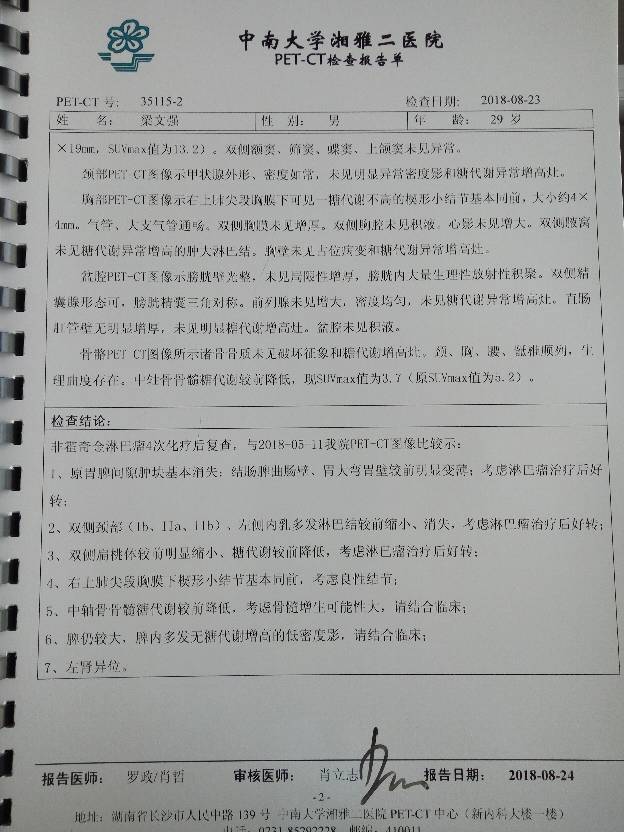 中南大学湘雅二医院
PET-CT检查报告单
PET-CT 号: 35115-2 检查日期: 2018-08-23
姓 名: 梁文强 性 别: 男 年 龄: 29 岁
×19mm, SUVmax值为13.2)。双侧额窦、筛窦、蝶窦、上颌窦未见异常。
颈部PET-CT图像示甲状腺外形、密度如常，未见明显异常密度影和糖代谢异常增高灶。
胸部PET-CT图像示右上肺尖段胸膜下可见一糖代谢不高的楔形小结节基本同前，大小约4×
4mm。气管、大支气管通畅。双侧胸膜未见增厚。双侧胸腔未见积液。心影未见增大。双侧腋窝
未见糖代谢异常增高的肿大淋巴结。胸壁未见占位病变和糖代谢异常增高灶。
盆腔PET-CT图像示膀胱壁光整，未见局限性增厚，膀胱内大量生理性放射性积聚。双侧精
囊腺形态可，膀胱精囊三角对称。前列腺未见增大，密度均匀，未见糖代谢异常增高灶。直肠
肛管壁无明显增厚，未见明显糖代谢增高灶。盆腔未见积液。
骨骼PET CT图像所示诸骨骨质未见破坏征象和糖代谢增高灶。颈、胸、腰、骶椎顺列，生
理曲度存在。中轴骨骨髓糖代谢较前降低，现SUVmax值为3.7（原SUVmax值为5.2）。
检查结论:
非霍奇金淋巴瘤4次化疗后复查，与2018-05-11我院PET-CT图像比较示:
1、原胃脾间隙肿块基本消失; 结肠脾曲肠壁、胃大弯胃壁较前明显变薄; 考虑淋巴瘤治疗后好
转;
2、双侧颈部（Ib、IIa、IIb）、左侧内乳多发淋巴结较前缩小、消失，考虑淋巴瘤治疗后好转;
3、双侧扁桃体较前明显缩小、糖代谢较前降低，考虑淋巴瘤治疗后好转;
4、右上肺尖段胸膜下楔形小结节基本同前，考虑良性结节;
5、中轴骨骨髓糖代谢较前降低，考虑骨髓增生可能性大，请结合临床;
6、脾仍较大，脾内多发无糖代谢增高的低密度影，请结合临床;
7、左肾异位。
报告医师: 罗政/肖哲 审核医师: 肖立志 报告日期: 2018-08-24
-2-
地址: 湖南省长沙市人民中路 139 号 中南大学湘雅二医院 PET-CT 中心（新内科大楼一楼）
电话: 0731-85292228 邮编: 410011